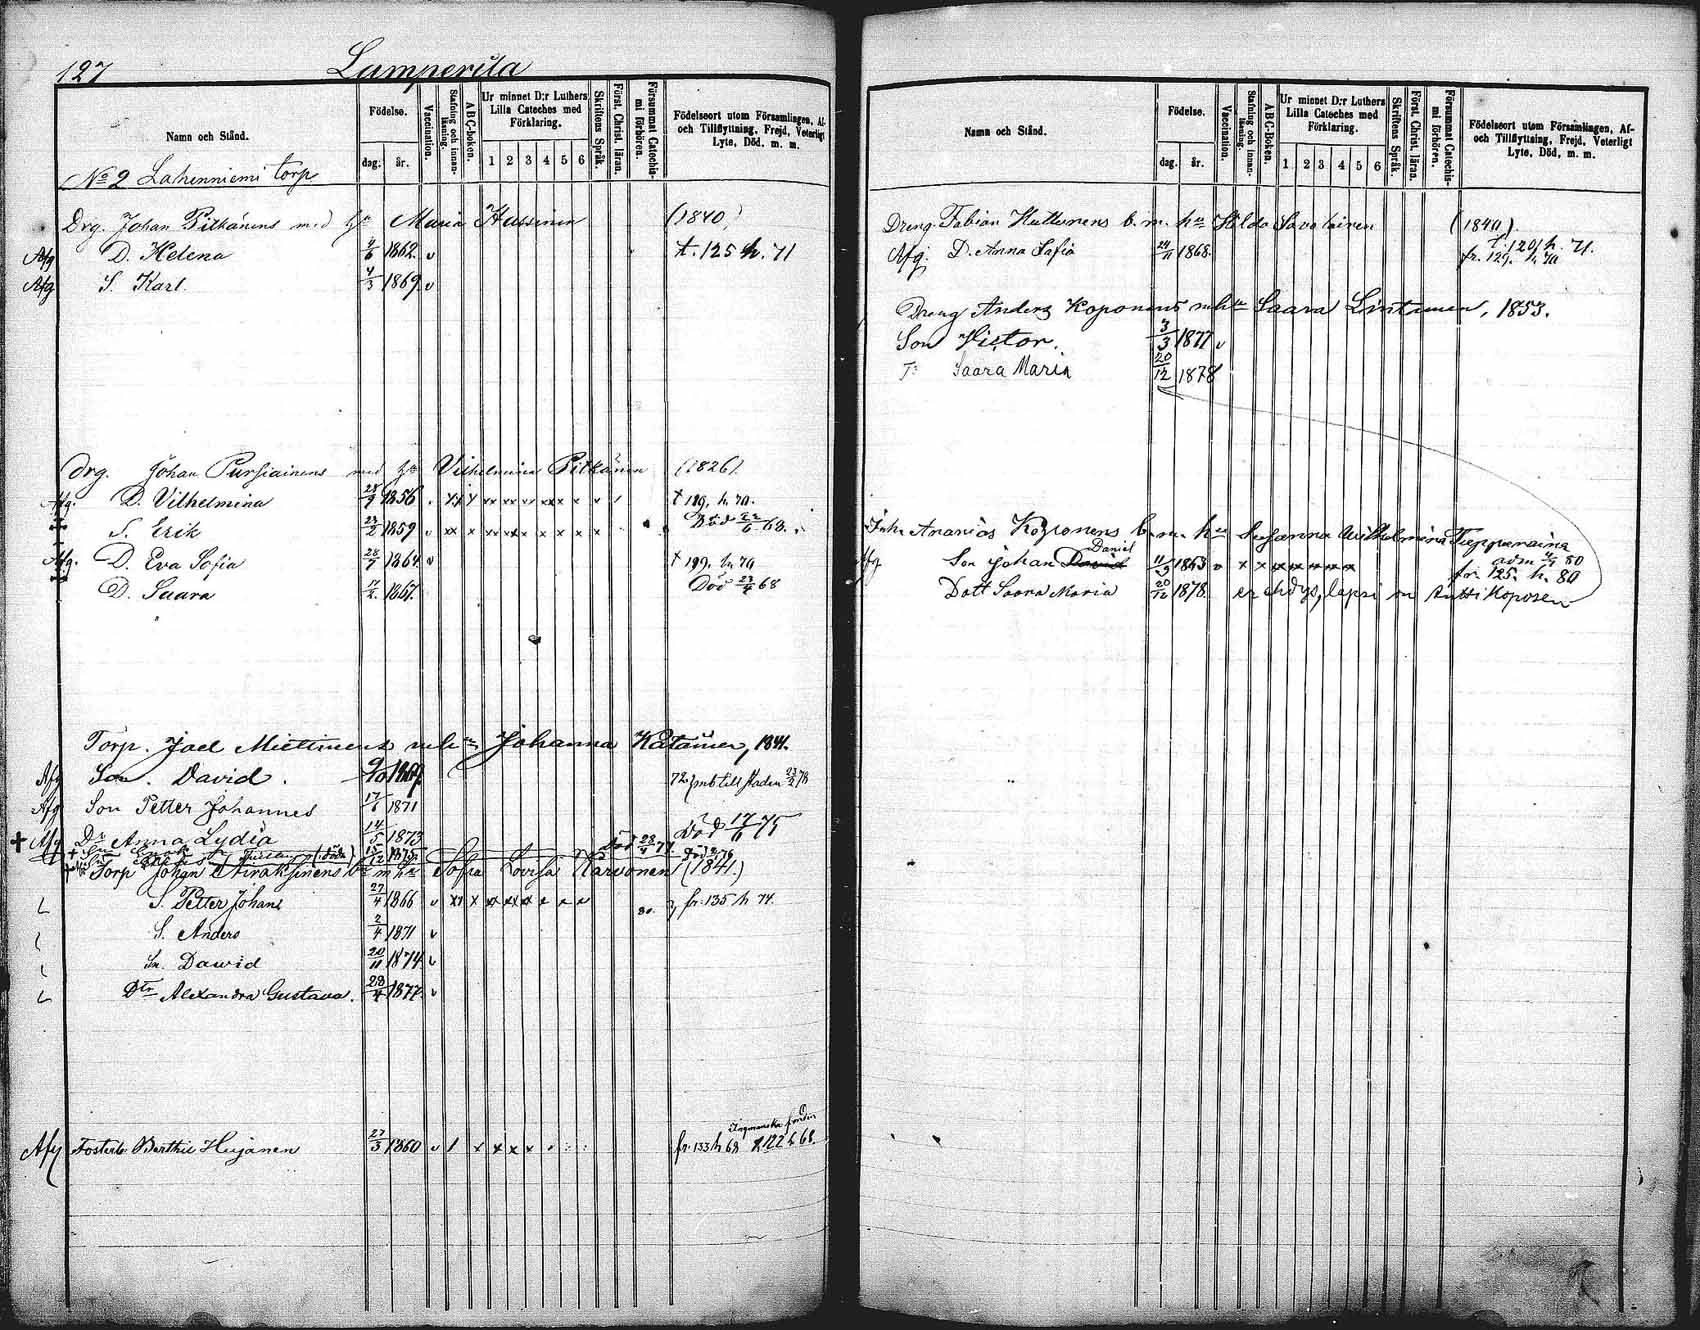 127 Lamperila
Namn och Stånd.
Födelse.
dag. år.
Vaccination.
Stafning och innanläsning.
ABC-boken.
Ur minnet D:r Luthers Lilla Cateches med Förklaring.
1 2 3 4 5 6
Skriftens Språk.
Först. Christ. läran.
Försummat Catechismi förhören.
Födelseort utom Församlingen, Af- och Tillflyttning, Frejd, Veterligt Lyte, Död, m. m.
No 2 Lahenniemi torp
Drg. Johan Pitkänens med h:u Maria Hussinen (1840)
Afg D. Helena 4/6 1862 v t. 125 h. 71
Afg S. Karl 4/3 1869 v
Drg. Johan Pursiainens med h:u Vilhelmina Pitkänen (1826)
Afg. D. Vilhelmina 28/9 1856 t 119, h. 70.
S. Erik 23/2 1859 Död 22/6 68.
Afg. D. Eva Sofia 28/7 1864 v t 119, h. 70
D. Saara 1867 Död 23/4 68
Torp. Joel Miettinens m h:u Johanna Katainen, 1841.
Afg Son. David. 1869
Afg Son Petter Johannes 17/6 1871
+ Afg D:r Anna Lydia 14/5 1873 Död 17/6 75
Torp Johan Airaksinens b m h:u Sofia Lovisa Karvonen (1841.)
S. Petter Johan 27/4 1866 v fr. 135 h 74.
S. Anders 2/4 1871 v
Sn. Dawid 20/11 1874 v
Dtr Alexandra Gustava. 28/4 1877 v
Afg Fosterb. Berthil Heijanen 27/3 1860 v fr. 133 h 68 122 h 68.
Namn och Stånd.
Födelse.
dag. år.
Vaccination.
Stafning och innanläsning.
ABC-boken.
Ur minnet D:r Luthers Lilla Cateches med Förklaring.
1 2 3 4 5 6
Skriftens Språk.
Först. Christ. läran.
Försummat Catechismi förhören.
Födelseort utom Församlingen, Af- och Tillflyttning, Frejd, Veterligt Lyte, Död, m. m.
Dreng Fabian Huttunens b. m. h:u Hilda Savolainen (1840)
Afg. D. Anna Sofia 24/11 1868. t. 120 h. 71.
fr. 129. h. 70
Dreng Anders Koponens m h:u Saara Lintunen, 1853.
Son Victor. 3/3 1877 v
T: Saara Maria 20/12 1878
Inh. Ananias Koponens b. m. h:u Susanna Wilhelmina Tiepponaina
Afg Son Johan David Daniel 11/9 1863 v adm 4/7 80
fr. 125. h. 80
Dott Saara Maria 20/12 1878 erehdys, lapsi on Antti Koposen